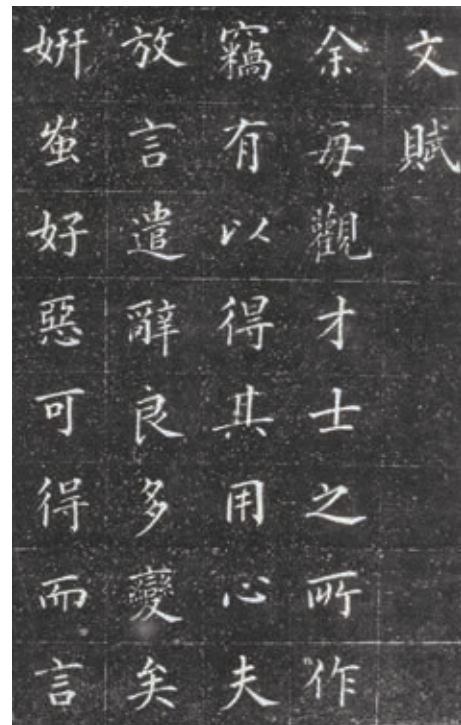 文賦
余每觀才士之所作
竊有以得其用心夫
放言遣辭良多變矣
妍蚩好惡可得而言